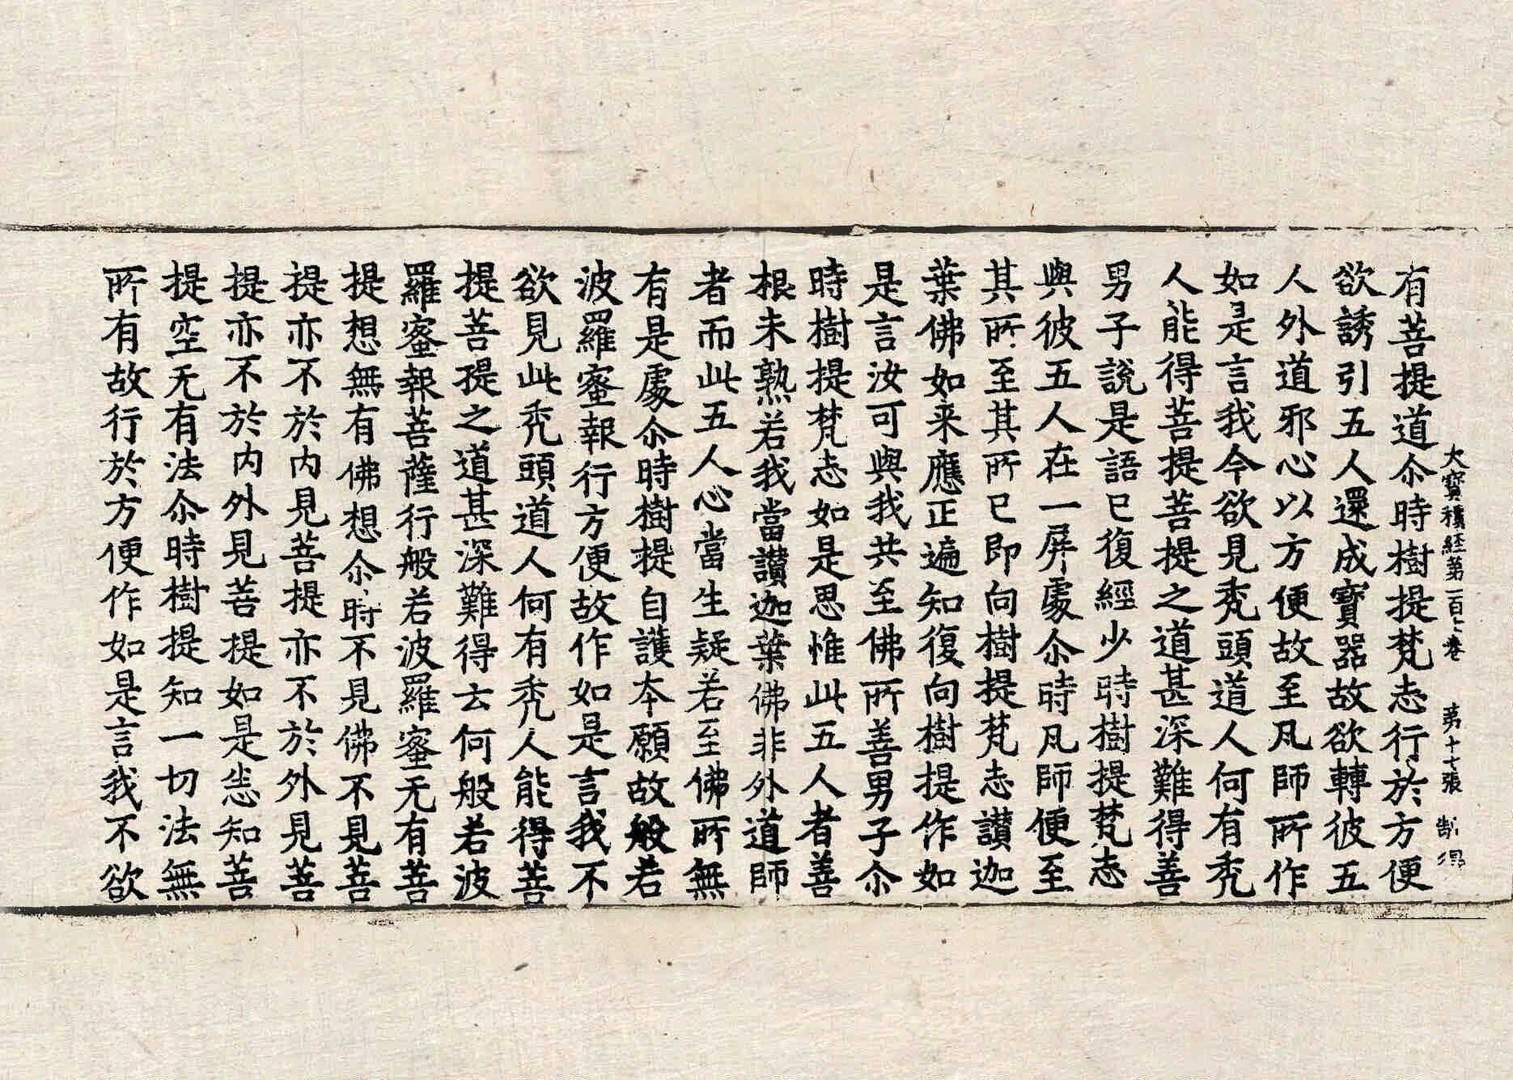 大寶積經第一百七卷 第十七張 制
有菩提道尒時樹提梵志行於方便
欲誘引五人還成寶器故欲轉彼五
人外道邪心以方便故至凡師所作
如是言我今欲見禿頭道人何有禿
人能得菩提菩提之道甚深難得善
男子說是語已復經少時樹提梵志
與彼五人在一屏處尒時凡師便至
其所至其所已即向樹提梵志讃迦
葉佛如来應正遍知復向樹提作如
是言汝可與我共至佛所善男子尒
時樹提梵志如是思惟此五人者善
根未熟若我當讃迦葉佛非外道師
者而此五人心當生疑若至佛所無
有是處尒時樹提自護夲願故般若
波羅蜜報行方便故作如是言我不
欲見此禿頭道人何有禿人能得菩
提菩提之道甚深難得云何般若波
羅蜜報菩薩行般若波羅蜜无有菩
提想無有佛想尒時不見佛不見菩
提亦不於内見菩提亦不於外見菩
提亦不於内外見菩提如是悉知菩
提空无有法尒時樹提知一切法無
所有故行於方便作如是言我不欲